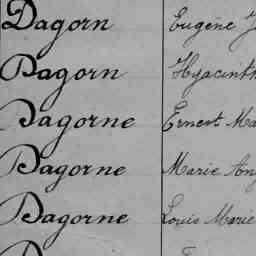 Dagorn Eugène
Dagorn Hyacinth
Dagorne Ernest Ma
Dagorne Marie Ang
Dagorne Louis Marie